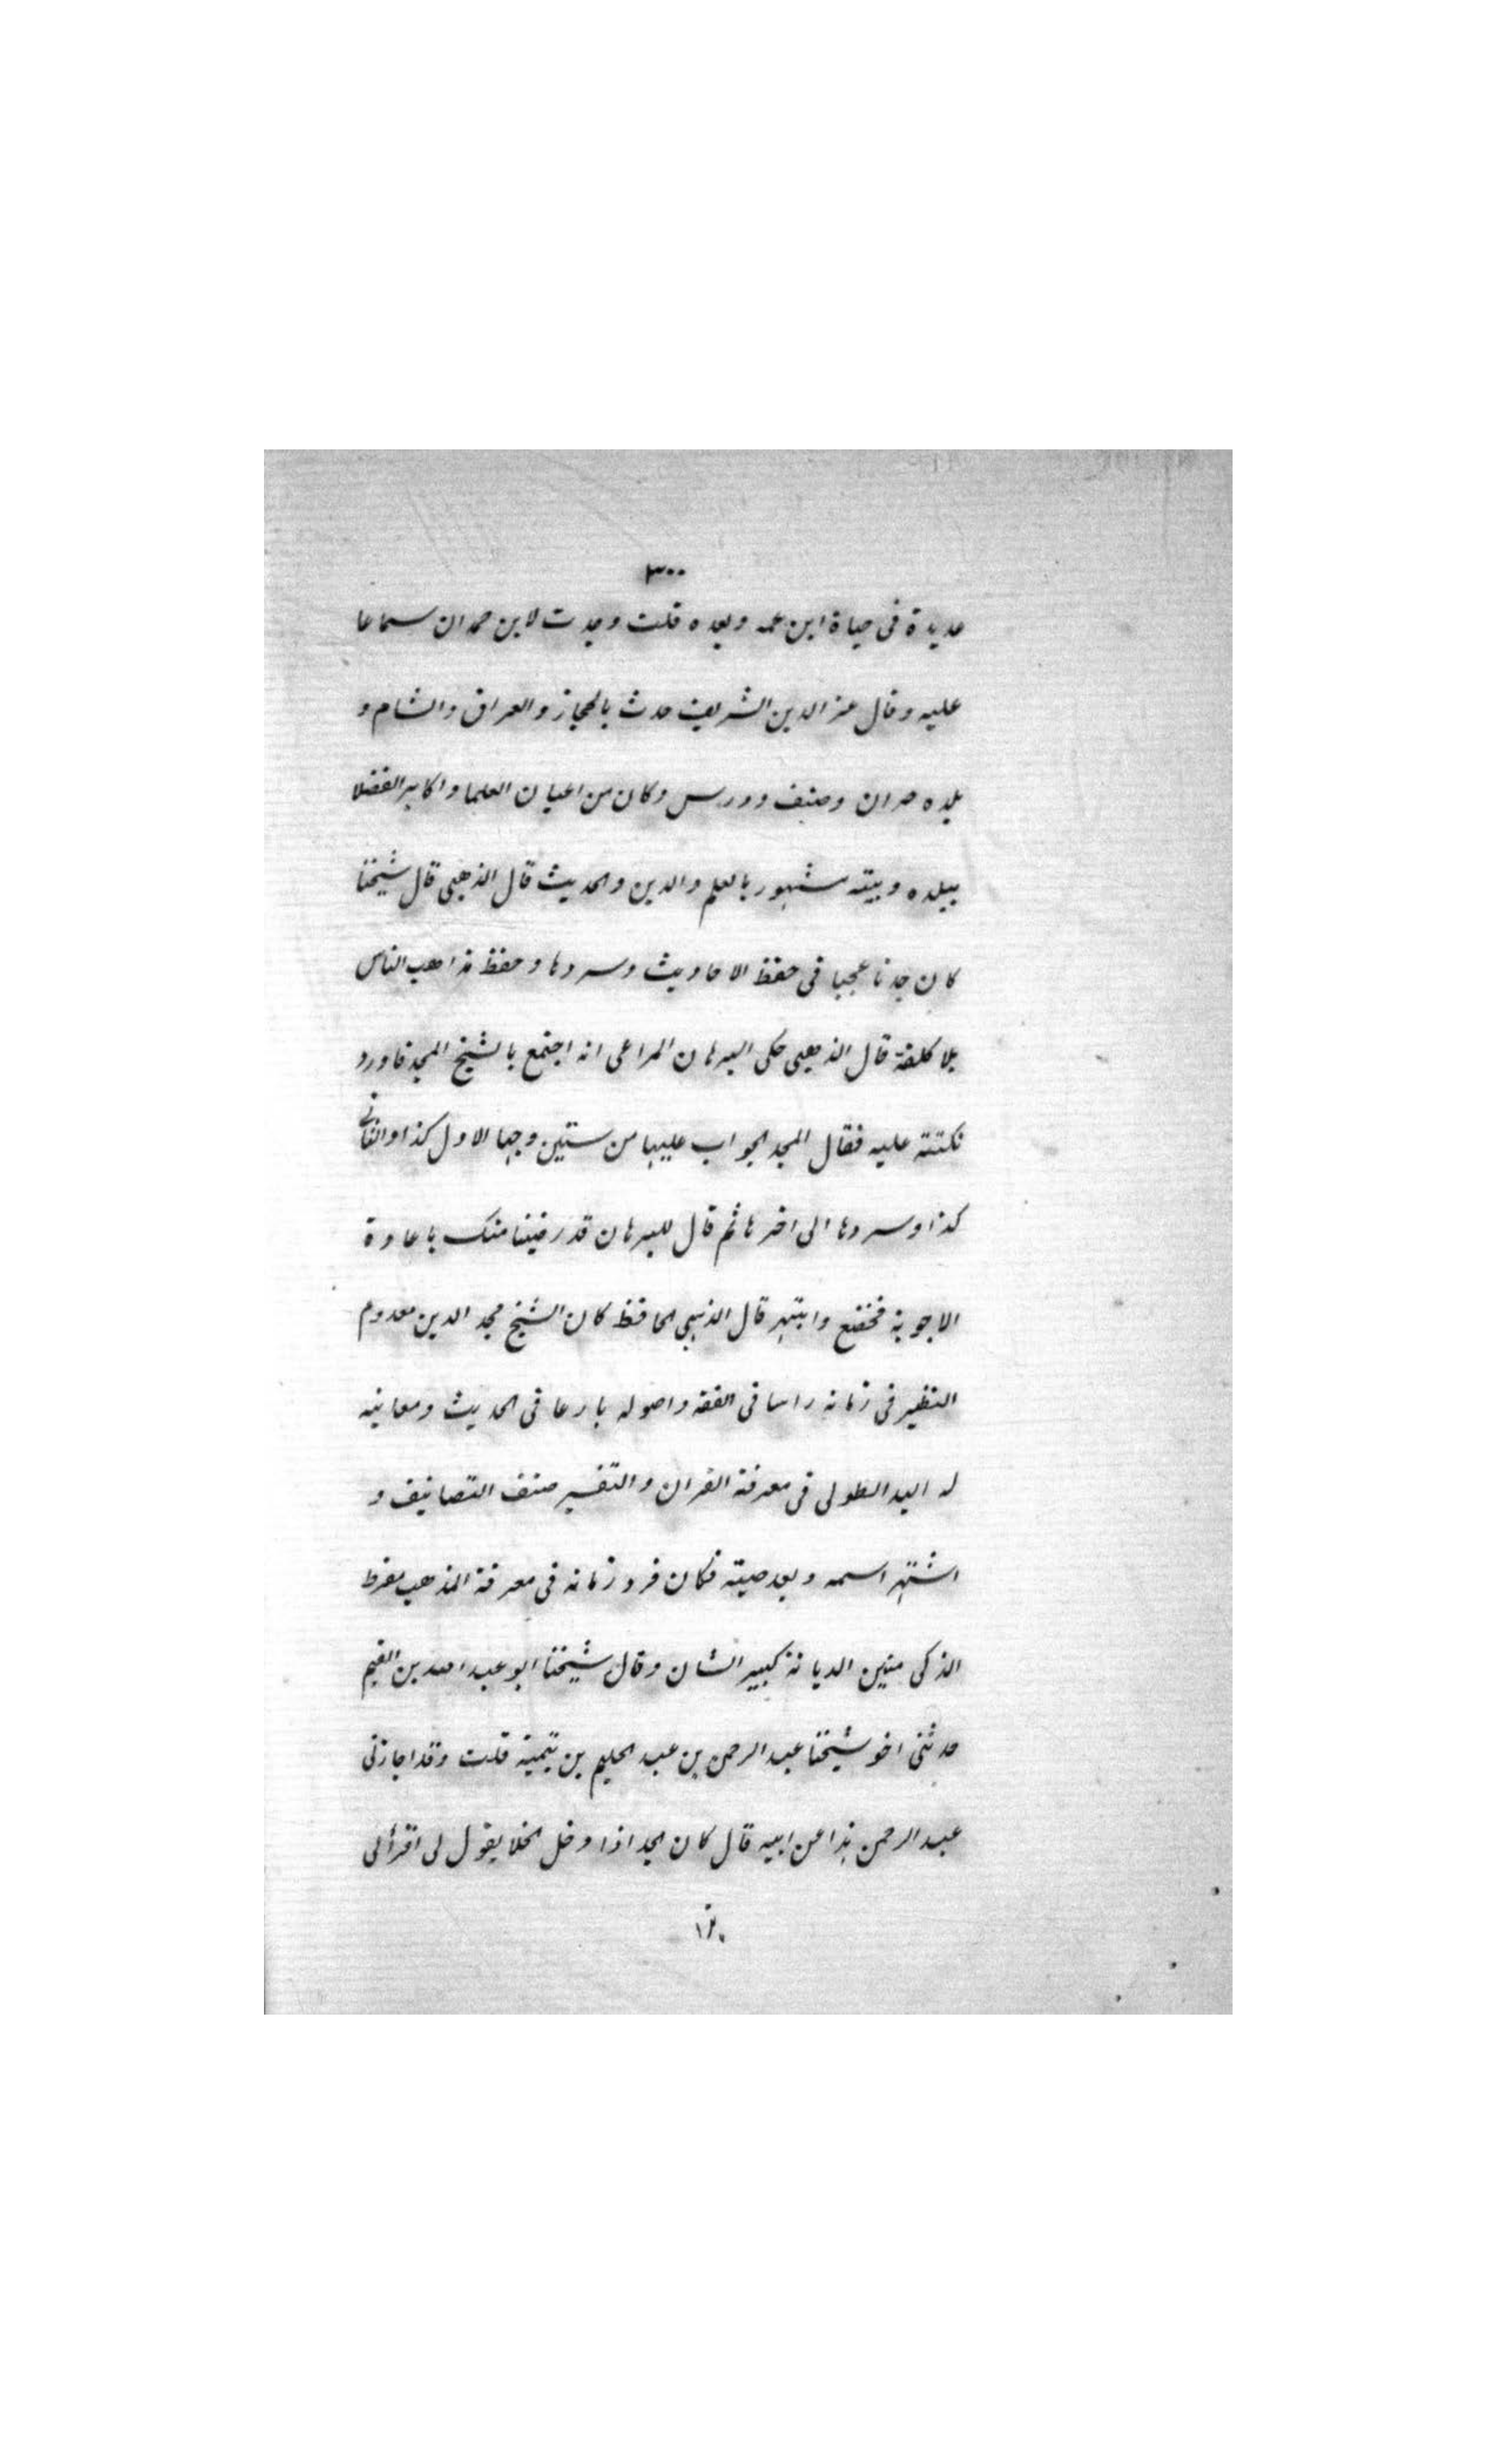 ٣٠٠
عديدة فى حياة ابن عمه وبعده قلت وجدت لابن حمدان سماعا
عليه وقال عز الدين الشريف حدث بالحجاز والعراق والشام و
بلده حران وصنف ودرس وكان من اعيان العلما واكابر الفضلا
ببلده وبيته مشهور بالعلم والدين والحديث قال الذهبى قال شيخنا
كان جدنا عجبا فى حفظ الاحاديث وسردها وحفظ مذاهب الناس
بلا كلفة قال الذهبى حكى البرهان المراعى انه اجتمع بالشيخ المجد فاورد
نكتتة عليه فقال المجد الجواب عليها من ستين وجها الاول كذا والثانى
كذا وسردها الى اخرها ثم قال للبرهان قد رضينا منك باعادة
الاجوبة فخضع وابتهر قال الذهبى الحافظ كان الشيخ مجد الدين معدوم
النظير فى زمانه راسا فى الفقه واصوله بارعا فى الحديث ومعانيه
له اليد الطولى فى معرفة القران والتفسير صنف التصانيف و
اشتهر اسمه وبعد صيته فكان فرد زمانه فى معرفة المذهب مفرط
الذكى متين الديانة كبير الشان وقال شيخنا ابو عبد الله بن القيم
حدثنى اخو شيخنا عبد الرحمن بن عبد الحليم بن تيمية قلت وقد اجازنى
عبد الرحمن هذا عن ابيه قال كان الجد اذا دخل الخلا يقول لى اقرأ لى